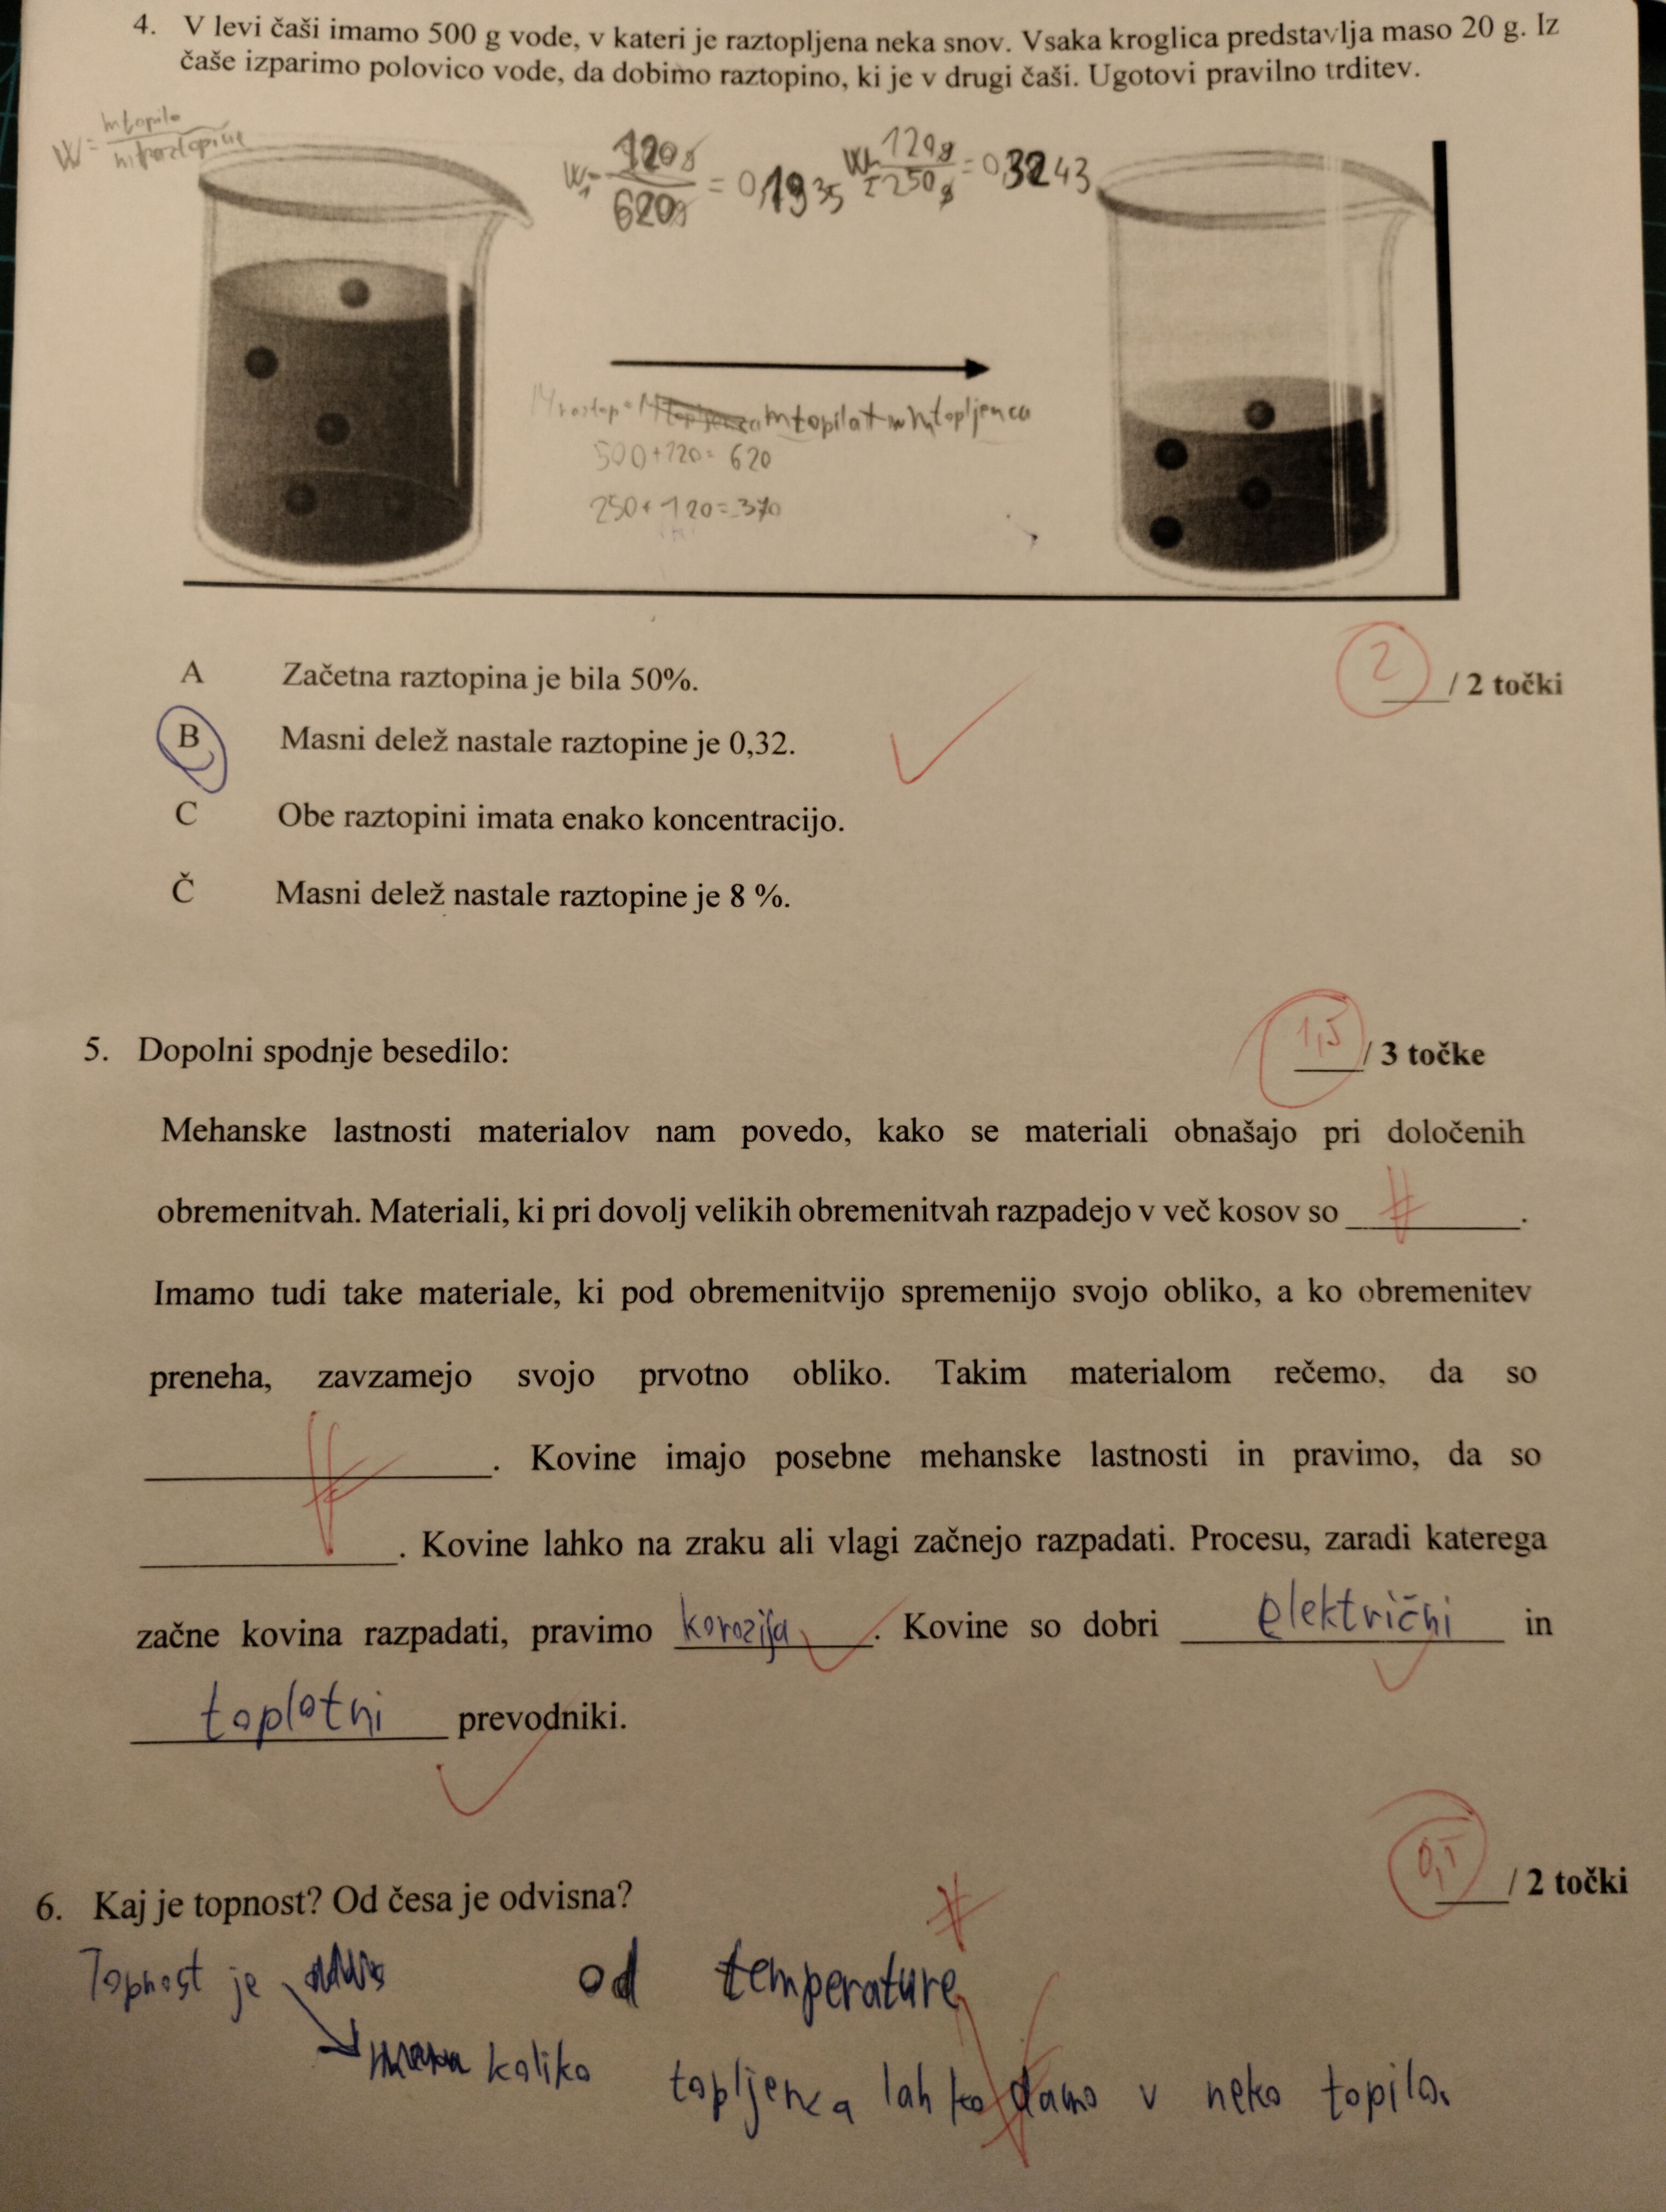 4. V levi čaši imamo 500 g vode, v kateri je raztopljena neka snov. Vsaka kroglica predstavlja maso 20 g. Iz
čaše izparimo polovico vode, da dobimo raztopino, ki je v drugi čaši. Ugotovi pravilno trditev.
W = mtopila / mraztopine
W1 = 120g / 620g = 0,1935
W2 = 120g / 250g = 0,3243
mtopila + mtopljenca
500+120= 620
250+120=370
2 / 2 točki
A Začetna raztopina je bila 50%.
B Masni delež nastale raztopine je 0,32.
C Obe raztopini imata enako koncentracijo.
Č Masni delež nastale raztopine je 8 %.
5. Dopolni spodnje besedilo: 1,5 / 3 točke
Mehanske lastnosti materialov nam povedo, kako se materiali obnašajo pri določenih
obremenitvah. Materiali, ki pri dovolj velikih obremenitvah razpadejo v več kosov so ________.
Imamo tudi take materiale, ki pod obremenitvijo spremenijo svojo obliko, a ko obremenitev
preneha, zavzamejo svojo prvotno obliko. Takim materialom rečemo, da so
________. Kovine imajo posebne mehanske lastnosti in pravimo, da so
________. Kovine lahko na zraku ali vlagi začnejo razpadati. Procesu, zaradi katerega
začne kovina razpadati, pravimo korozija. Kovine so dobri električni in
toplotni prevodniki.
0,5 / 2 točki
6. Kaj je topnost? Od česa je odvisna?
Topnost je od temperature
koliko topljenca lahko damo v neko topilo.